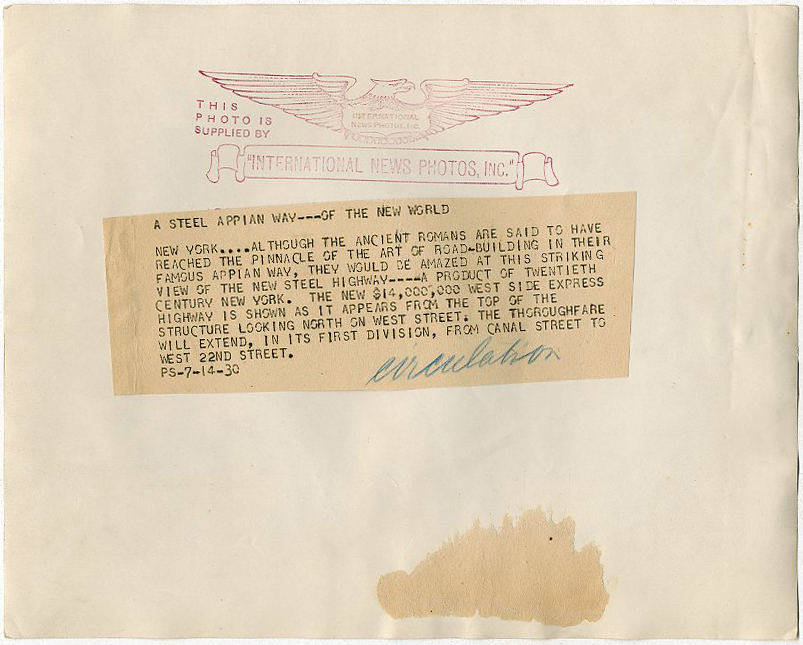 THIS
PHOTO IS
SUPPLIED BY
INTERNATIONAL
NEWS PHOTOS, INC.
"INTERNATIONAL NEWS PHOTOS, INC."
A STEEL APPIAN WAY---OF THE NEW WORLD
NEW YORK....ALTHOUGH THE ANCIENT ROMANS ARE SAID TO HAVE
REACHED THE PINNACLE OF THE ART OF ROAD-BUILDING IN THEIR
FAMOUS APPIAN WAY, THEY WOULD BE AMAZED AT THIS STRIKING
VIEW OF THE NEW STEEL HIGHWAY----A PRODUCT OF TWENTIETH
CENTURY NEW YORK. THE NEW $14,000,000 WEST SIDE EXPRESS
HIGHWAY IS SHOWN AS IT APPEARS FROM THE TOP OF THE
STRUCTURE LOOKING NORTH ON WEST STREET. THE THOROUGHFARE
WILL EXTEND, IN ITS FIRST DIVISION, FROM CANAL STREET TO
WEST 22ND STREET.
PS-7-14-30
circulation